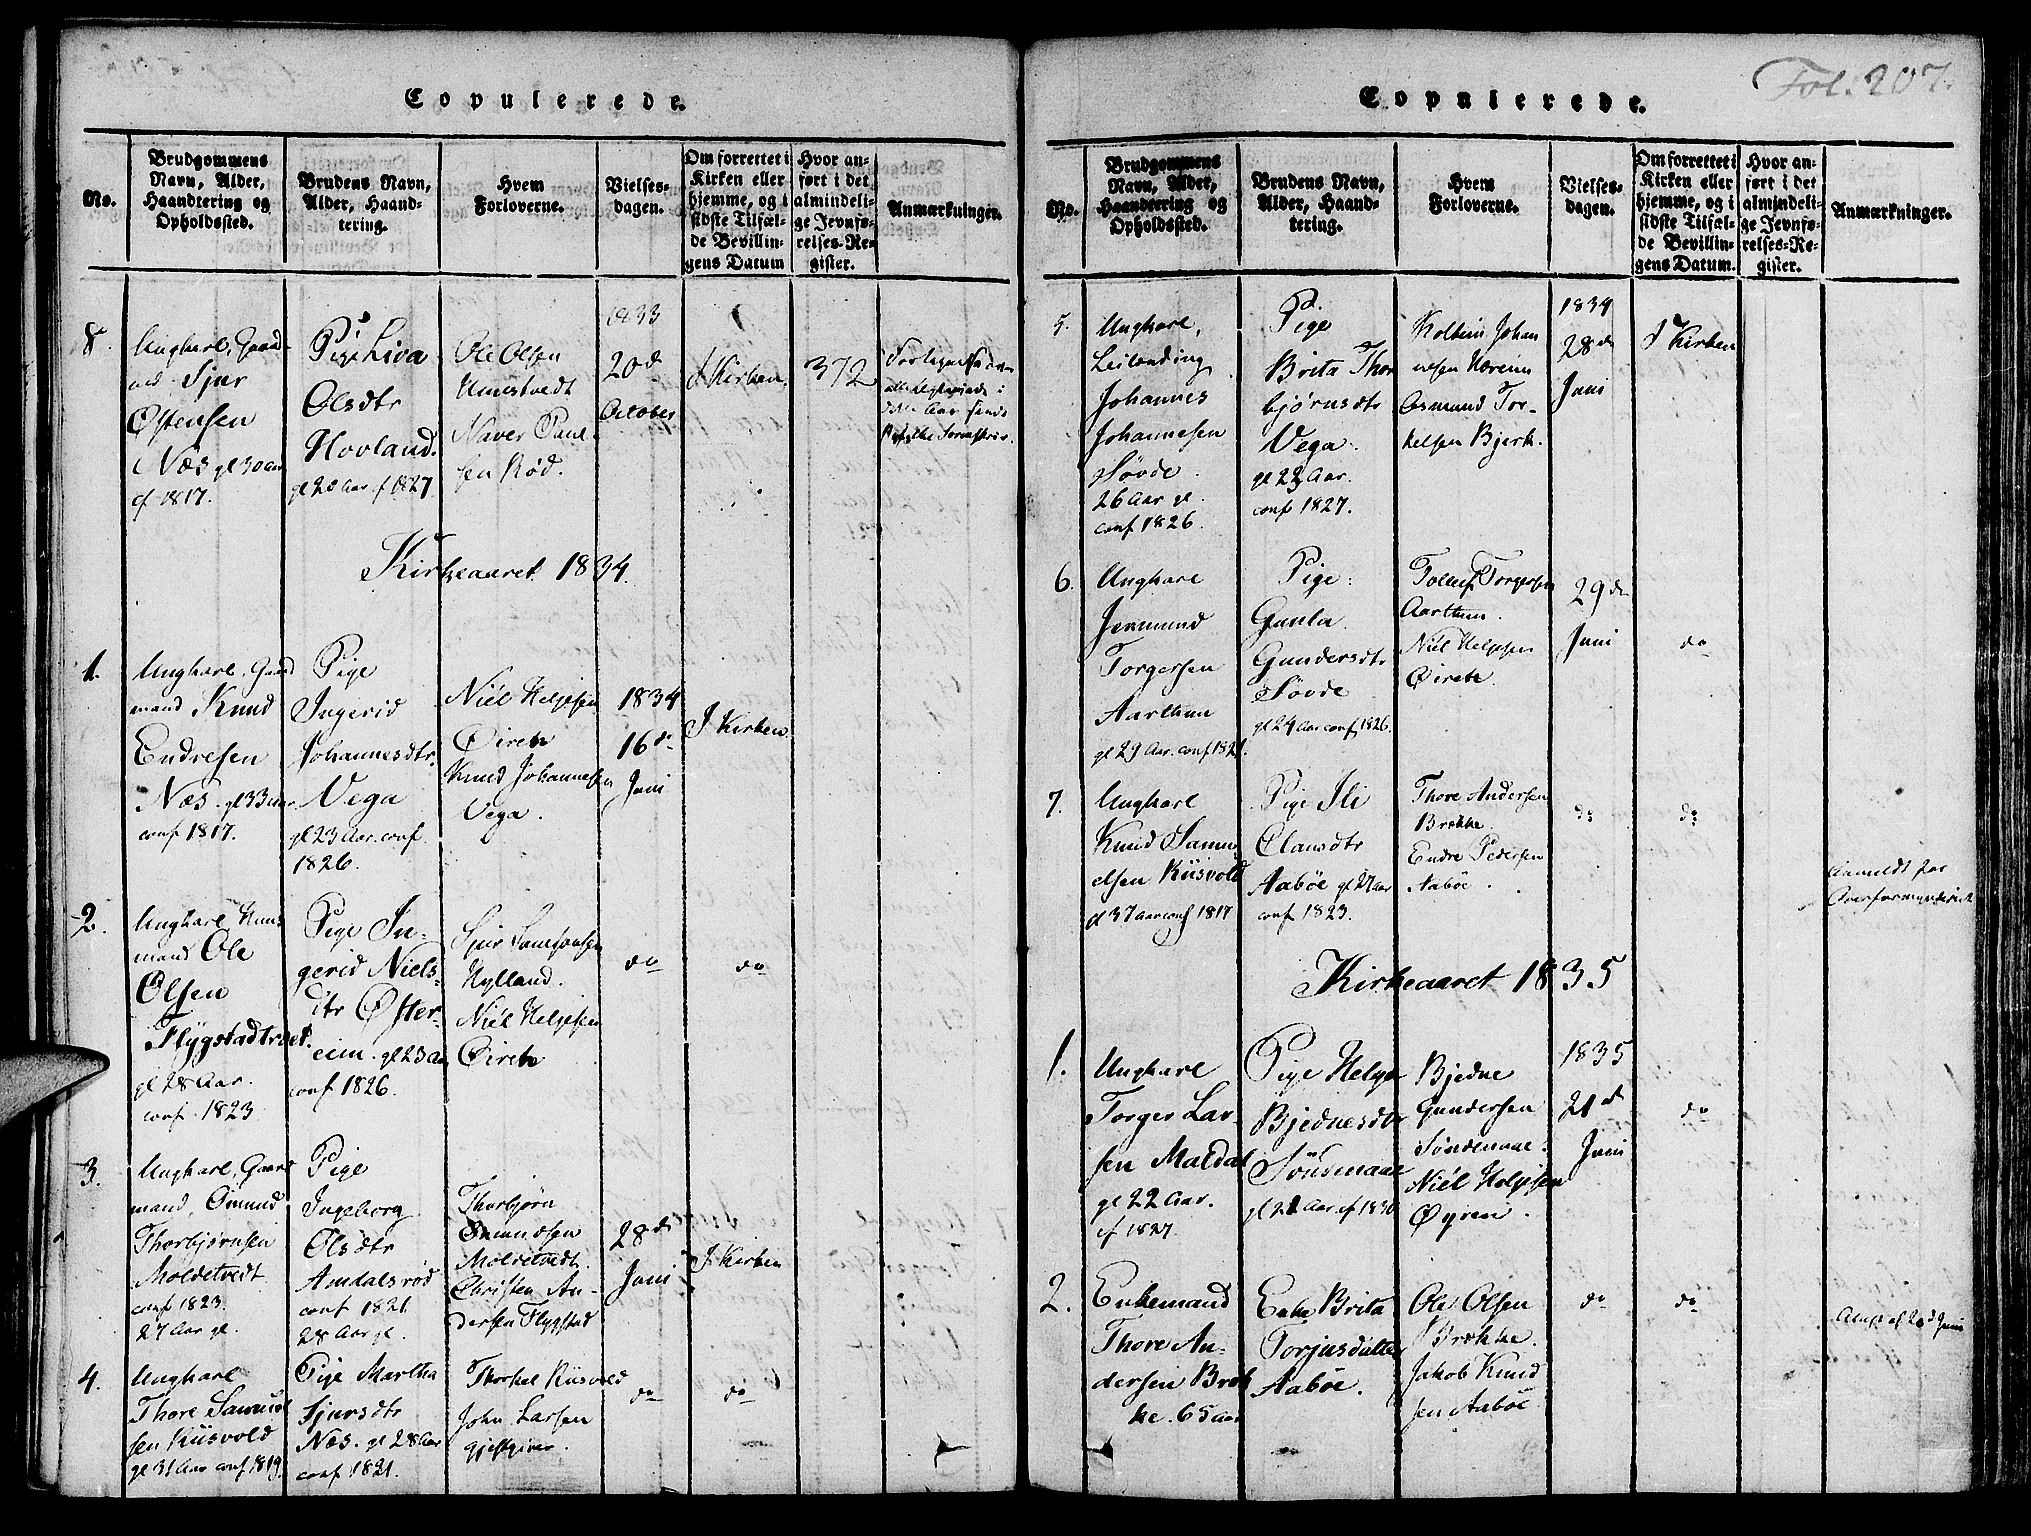 Copulerede.
No.
Brudgommens
Navn, Alder,
Haandtering og
Opholdssted.
Brudens Navn,
Alder, Haand-
tering.
Hvem
Forloverne.
Vielses-
dagen.
Om forrettet i
Kirken eller
hjemme, og i
sidste Tilfæl-
de Bevillin-
gens Datum
Hvor an-
ført i det
almindeli-
ge Jevnfø-
relses-Re-
gister.
Anmærkninger.
8.
Ungkarl, Gaard-
md Sjur
Østensen
Næs gl 30 Aar
cf 1817.
Pige Siva
Olsdtr
Hovland.
gl 20 Aar cf 1827
Ole Olsen
Naver Paul-
sen Rød.
1833
20d
October
I Kirken.
372
Kirkeaaret 1834
1.
Ungkarl, Gaard
mand Knud
Endresen
Næs. gl 33 aar
conf 1817.
Pige
Ingerid
Johannesdtr
Vega
gl 23 Aar. conf
1826.
Niél Helgesen
Øiren
Knud Johannesen
Vega.
1834
16de
Juni
I Kirken.
2.
Ungkarl Huus
mand Ole
Olsen
Flygstadtræet.
gl 28 Aar.
conf. 1823
Pige In-
gerid Niels-
dtr Øster-
eim. gl 23 Aar
conf 1826.
Sjur Samsonsen
Hylland.
Niél Helgesen
Øiren
do
do
3.
Ungkarl, Gaard
mand, Omund
Thorbjørnsen
Moldetvedt
conf 1823.
27 Aar gl.
Pige
Ingeborg
Olsdtr
Amdalsrød
conf 1821.
28 Aar gl.
Thorbjørn
Omundsen
Moldetvedt.
Christen An-
dersen Flygstad
28de
Juni
I Kirken
4.
Ungkarl
Thore Samuel
sen Riisvold
gl 31 Aar conf 1819.
Pige Martha
Sjursdtr
Næs. gl 28 Aar
conf 1821.
Thorkel Riisvold
John Larsen
gjestgiver.
do
do
Copulerede.
Fol. 207.
No.
Brudgommens
Navn, Alder,
Haandtering og
Opholdssted.
Brudens Navn,
Alder, Haand-
tering.
Hvem
Forloverne.
Vielses-
dagen.
Om forrettet i
Kirken eller
hjemme, og i
sidste Tilfæl-
de Bevillin-
gens Datum.
Hvor an-
ført i det
almindeli-
ge Jevnfø-
relses-Re-
gister.
Anmærkninger.
5.
Ungkarl,
Leilending
Johannes
Johannesen
Søvde.
26 Aar gl.
conf 1826.
Pige
Brita Thor
bjørnsdtr
Vega.
gl 23 Aar.
conf 1827.
Kolbein Johan
nesen
Asmund Tor-
kelsen Bjerk.
1834
28de
Juni
I Kirken
6.
Ungkarl
Jermund
Torgersen
Aarthun
gl 29 Aar. conf 1821.
Pige.
Gunla
Gundersdtr
Søvde
gl 24 Aar conf 1826.
Tollef Torgersen
Aarthun.
Niél Helgesen
Øiren.
29de
Juni
do
7.
Ungkarl
Knud Samu
elsen Riisvold
gl 37 Aar conf 1817
Pige Ili
Clausdtr
Aabøe gl 27 Aar
conf 1823.
Thore Andersen
Brække.
Endre Pedersen
Aabøe.
do
do
Anmeldt for
Overformynderiet
Kirkeaaret 1835
1.
Ungkarl
Torger Lar-
sen Maldal
gl 22 Aar.
cf 1827.
Pige Helga
Bjednesdtr
Søndenaae
gl 21 Aar. cf 1830
Bjedne
Gundersen
Søndenaae.
Niél Helgesen
Øyren.
1835
21de
Juni
do
2.
Enkemand
Thore An-
dersen Bræk
ke. 65 Aar
Enke Brita
Torjusdatter
Aabøe.
Ole Olsen
Brække.
Jakob Knud
sen Aabøe
do
do